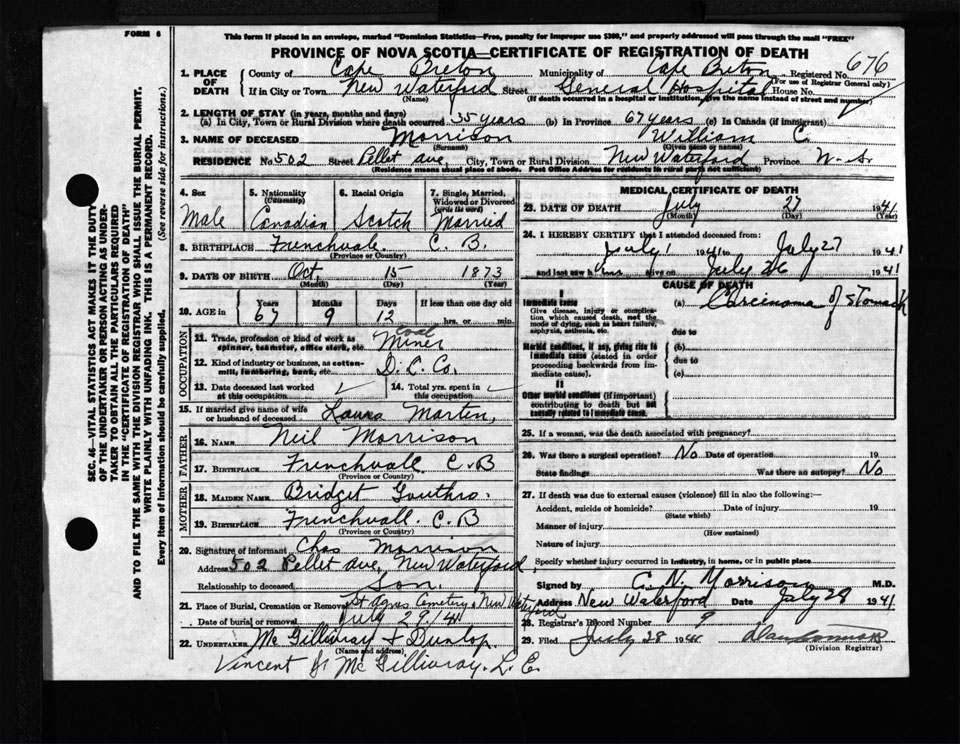 FORM 6
This form if placed in an envelope, marked "Dominion Statistics—Free, penalty for improper use $300," and properly addressed will pass through the mail "FREE"
PROVINCE OF NOVA SCOTIA—CERTIFICATE OF REGISTRATION OF DEATH
1. PLACE OF DEATH County of Cape Breton Municipality of Cape Breton Registered No. 676
(For use of Registrar General only)
If in City or Town New Waterford Street General Hospital House No.
(Name) (If death occurred in a hospital or institution, give the name instead of street and number)
2. LENGTH OF STAY (in years, months and days)
(a) In City, Town or Rural Division where death occurred 35 years (b) In Province 67 years (c) In Canada (if immigrant)
3. NAME OF DECEASED Morrison William C.
(Surname) (Given name or names)
RESIDENCE No 502 Street Pellet Ave, City, Town or Rural Division New Waterford Province N.S.
(Residence means usual place of abode. Post Office Address for residents in rural parts not sufficient)
4. Sex Male
5. Nationality (Citizenship) Canadian
6. Racial Origin Scotch
7. Single, Married, Widowed or Divorced (write the word) Married
8. BIRTHPLACE Frenchvale. C. B.
(Province or Country)
9. DATE OF BIRTH Oct 15 1873
(Month) (Day) (Year)
10. AGE in Years 67 Months 9 Days 12 If less than one day old hrs. or min.
OCCUPATION
11. Trade, profession or kind of work as spinner, teamster, office clerk, etc. Coal Miner
12. Kind of industry or business, as cotton-mill, lumbering, bank, etc. D. C. Co.
13. Date deceased last worked at this occupation
14. Total yrs. spent in this occupation
15. If married give name of wife or husband of deceased Laura Martin,
FATHER
16. NAME Neil Morrison
17. BIRTHPLACE Frenchvall C. B
(Province or Country)
MOTHER
18. MAIDEN NAME Bridget Gouthro.
19. BIRTHPLACE Frenchvall. C. B
(Province or Country)
20. Signature of informant Chas Morrison
Address 502 Pellet Ave, New Waterford,
Relationship to deceased Son.
21. Place of Burial, Cremation or Removal St Agnes Cemetery New Waterford
Date of burial or removal July 29/41
22. UNDERTAKER McGillivray & Dunlop
(Name and address)
Vincent J. McGillivray. L. E.
MEDICAL CERTIFICATE OF DEATH
23. DATE OF DEATH July 27 1941
(Month) (Day) (Year)
24. I HEREBY CERTIFY that I attended deceased from:
July 1 1941 to July 27 1941
and last saw him alive on July 26 1941
CAUSE OF DEATH
I
Immediate cause (a) Carcinoma of stomach
Give disease, injury or complication which caused death, not the mode of dying, such as heart failure, asphyxia, asthenia, etc.
due to
Morbid conditions, if any, giving rise to immediate cause (stated in order proceeding backwards from immediate cause).
(b)
due to
(c)
II
Other morbid conditions (if important) contributing to death but not causally related to immediate cause.
25. If a woman, was the death associated with pregnancy?
26. Was there a surgical operation? No Date of operation 19
State findings Was there an autopsy? No
27. If death was due to external causes (violence) fill in also the following:—
Accident, suicide or homicide? Date of injury 19
(State which)
Manner of injury
(How sustained)
Nature of injury
Specify whether injury occurred in industry, in home, or in public place
Signed by C. N. Morrison M.D.
Address New Waterford Date July 28 1941
28. Registrar's Record Number 9
29. Filed July 28 1941
(Division Registrar)
SEC. 46—VITAL STATISTICS ACT MAKES IT THE DUTY
OF THE UNDERTAKER OR PERSON ACTING AS UNDER-
TAKER TO OBTAIN ALL THE PARTICULARS REQUIRED
IN THE "CERTIFICATE OF REGISTRATION OF DEATH"
AND TO FILE THE SAME WITH THE DIVISION REGISTRAR WHO SHALL ISSUE THE BURIAL PERMIT.
WRITE PLAINLY WITH UNFADING INK. THIS IS A PERMANENT RECORD.
Every item of Information should be carefully supplied. (See reverse side for instructions.)